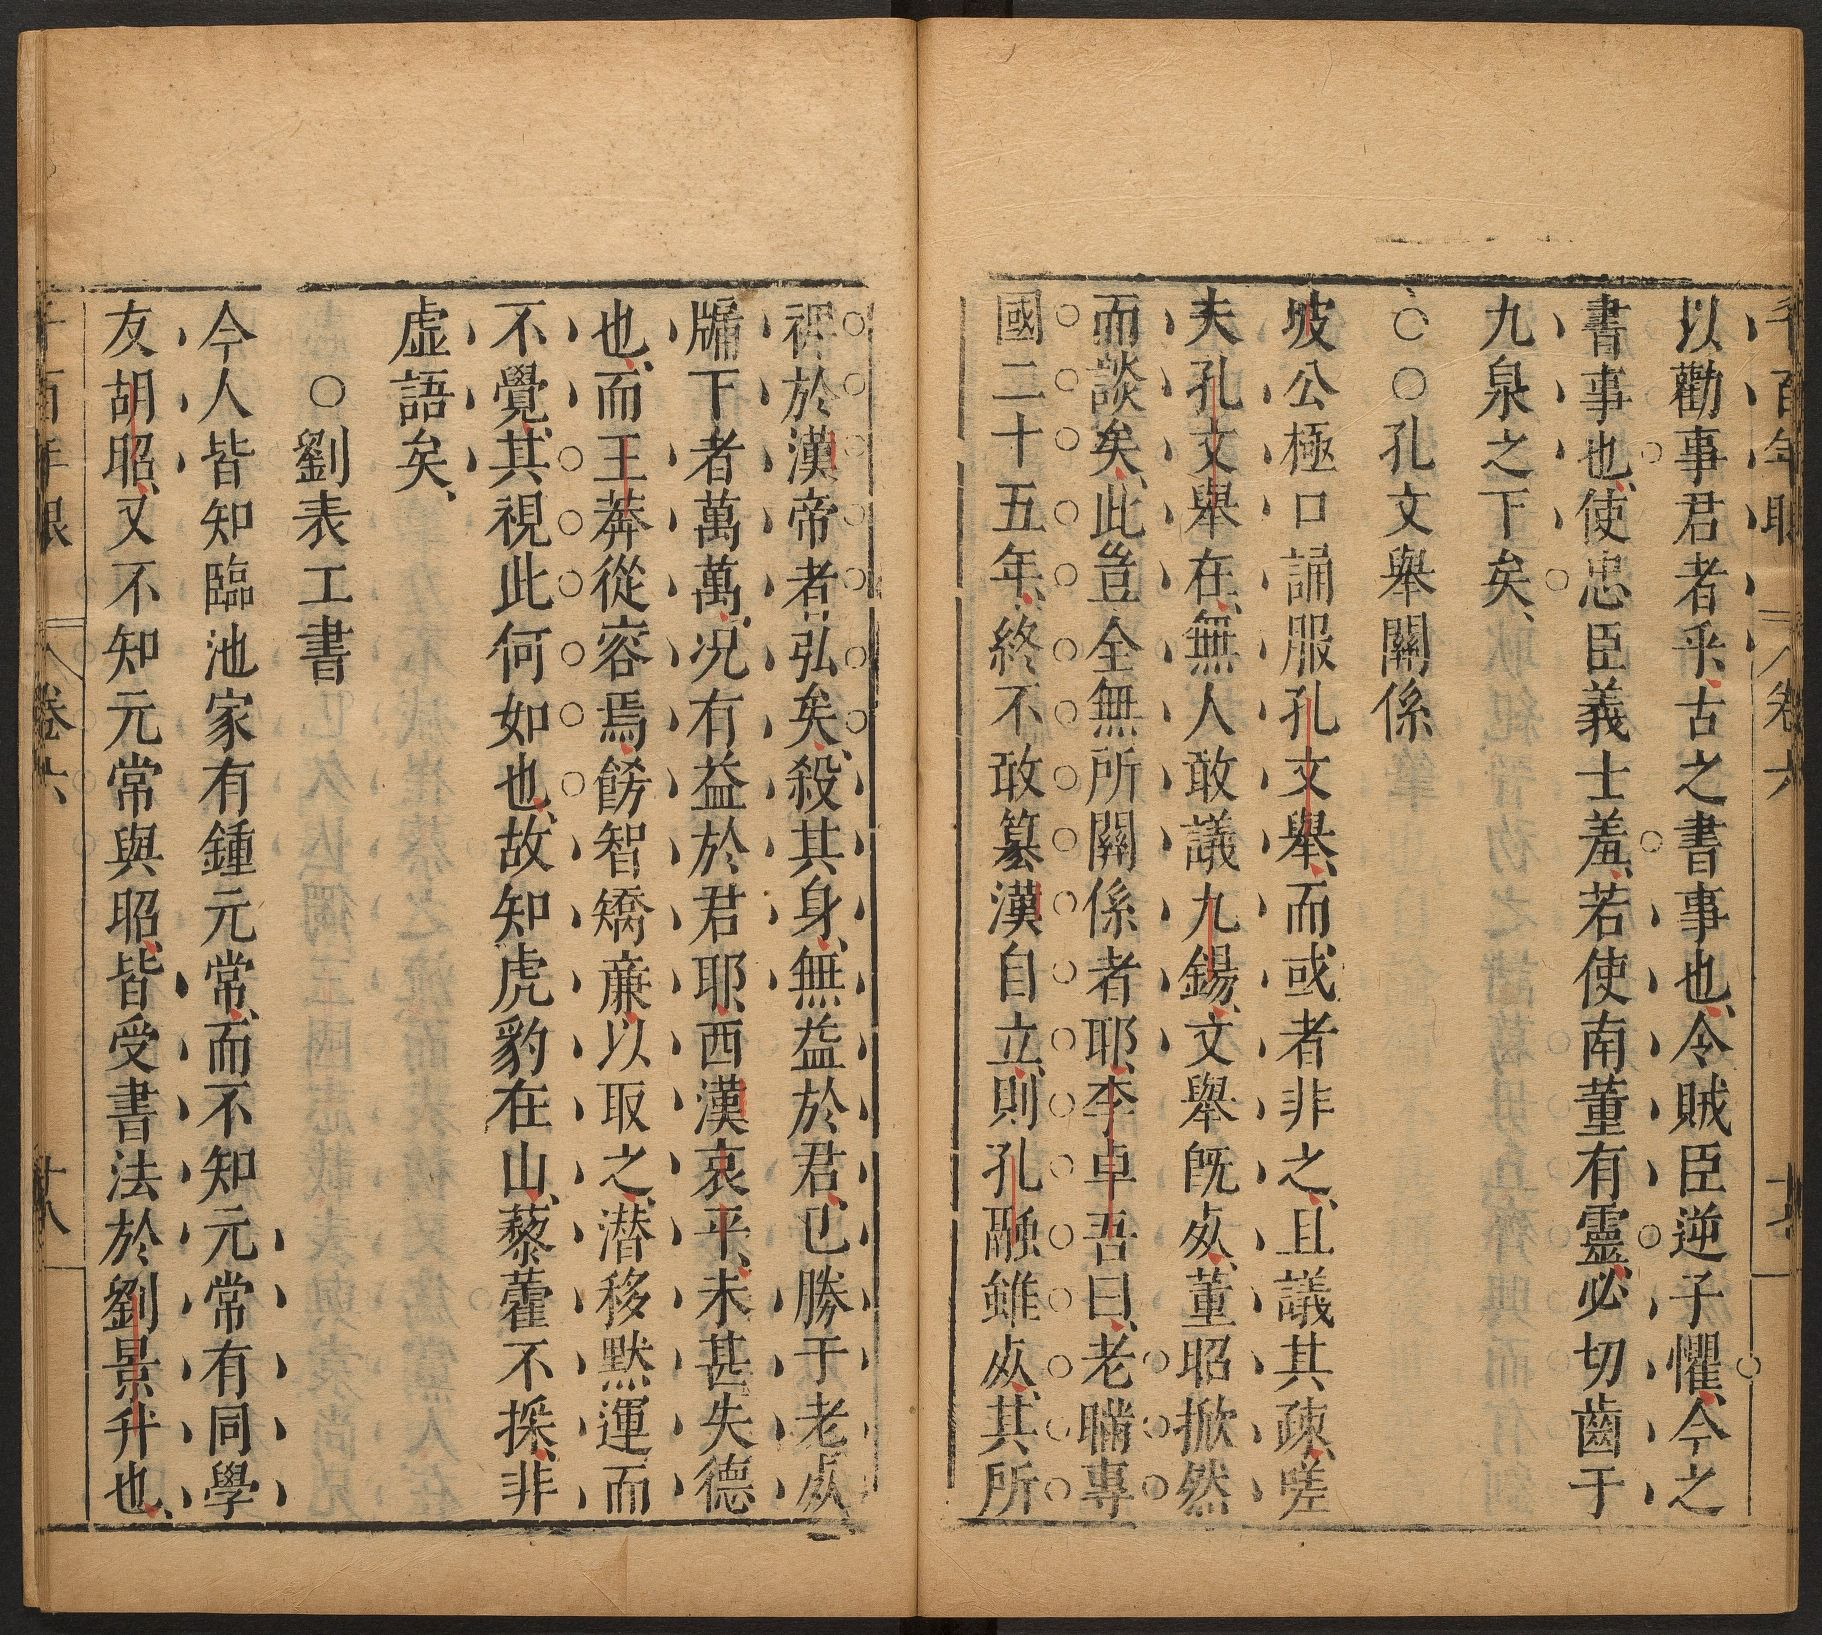 千百年眼 卷六 十七
以勸事君者乎、古之書事也、令賊臣逆子懼、今之
書事也、使忠臣義士羞、若使南董有靈、必切齒于
九泉之下矣、
○○孔文舉關係
坡公極口誦服孔文舉、而或者非之、且議其疎、嗟
夫孔文舉在、無人敢議九錫、文舉旣㱕、董昭掀然
而談矣、此豈全無所關係者耶、李卓吾曰、老瞞專
國二十五年、終不敢篡漢自立、則孔融雖㱕、其所
裨於漢帝者弘矣、殺其身、無益於君、已勝于老㱕
牖下者萬萬、况有益於君耶、西漢哀平、未甚失德
也、而王莽從容焉、餝智矯廉、以取之、潜移黙運而
不覺、其視此何如也、故知虎豹在山、藜藿不採、非
虛語矣、
○劉表工書
今人皆知臨池家有鍾元常、而不知元常有同學
友胡昭、又不知元常與昭、皆受書法於劉景升也、
千百年眼 卷六 十八